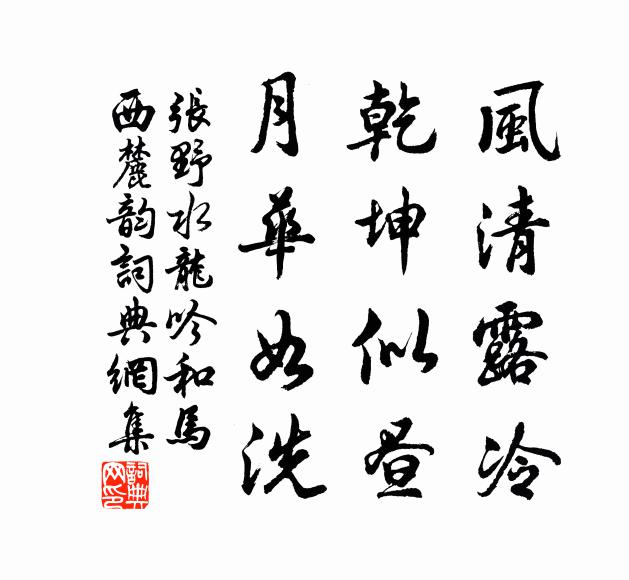 風清露冷
乾坤似晝
月華如洗
張野水龍吟和馬
西麓韵詞典網集
詞典网印